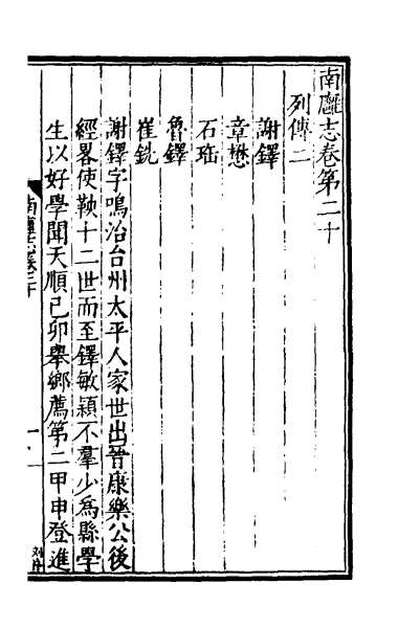 南廱志卷第二十
列傳二
謝鐸
章懋
石珤
魯鐸
崔銑
謝鐸字鳴治台州太平人家世出晉康樂公後
經畧使鞅十二世而至鐸敏穎不羣少為縣學
生以好學聞天順己卯舉鄉薦第二甲申登進